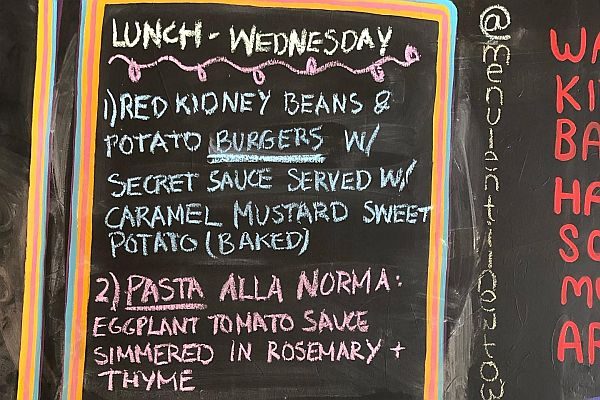 LUNCH - WEDNESDAY
1) RED KIDNEY BEANS &
POTATO BURGERS W/
SECRET SAUCE SERVED W/
CARAMEL MUSTARD SWEET
POTATO (BAKED)
2) PASTA ALLA NORMA:
EGGPLANT TOMATO SAUCE
SIMMERED IN ROSEMARY +
THYME